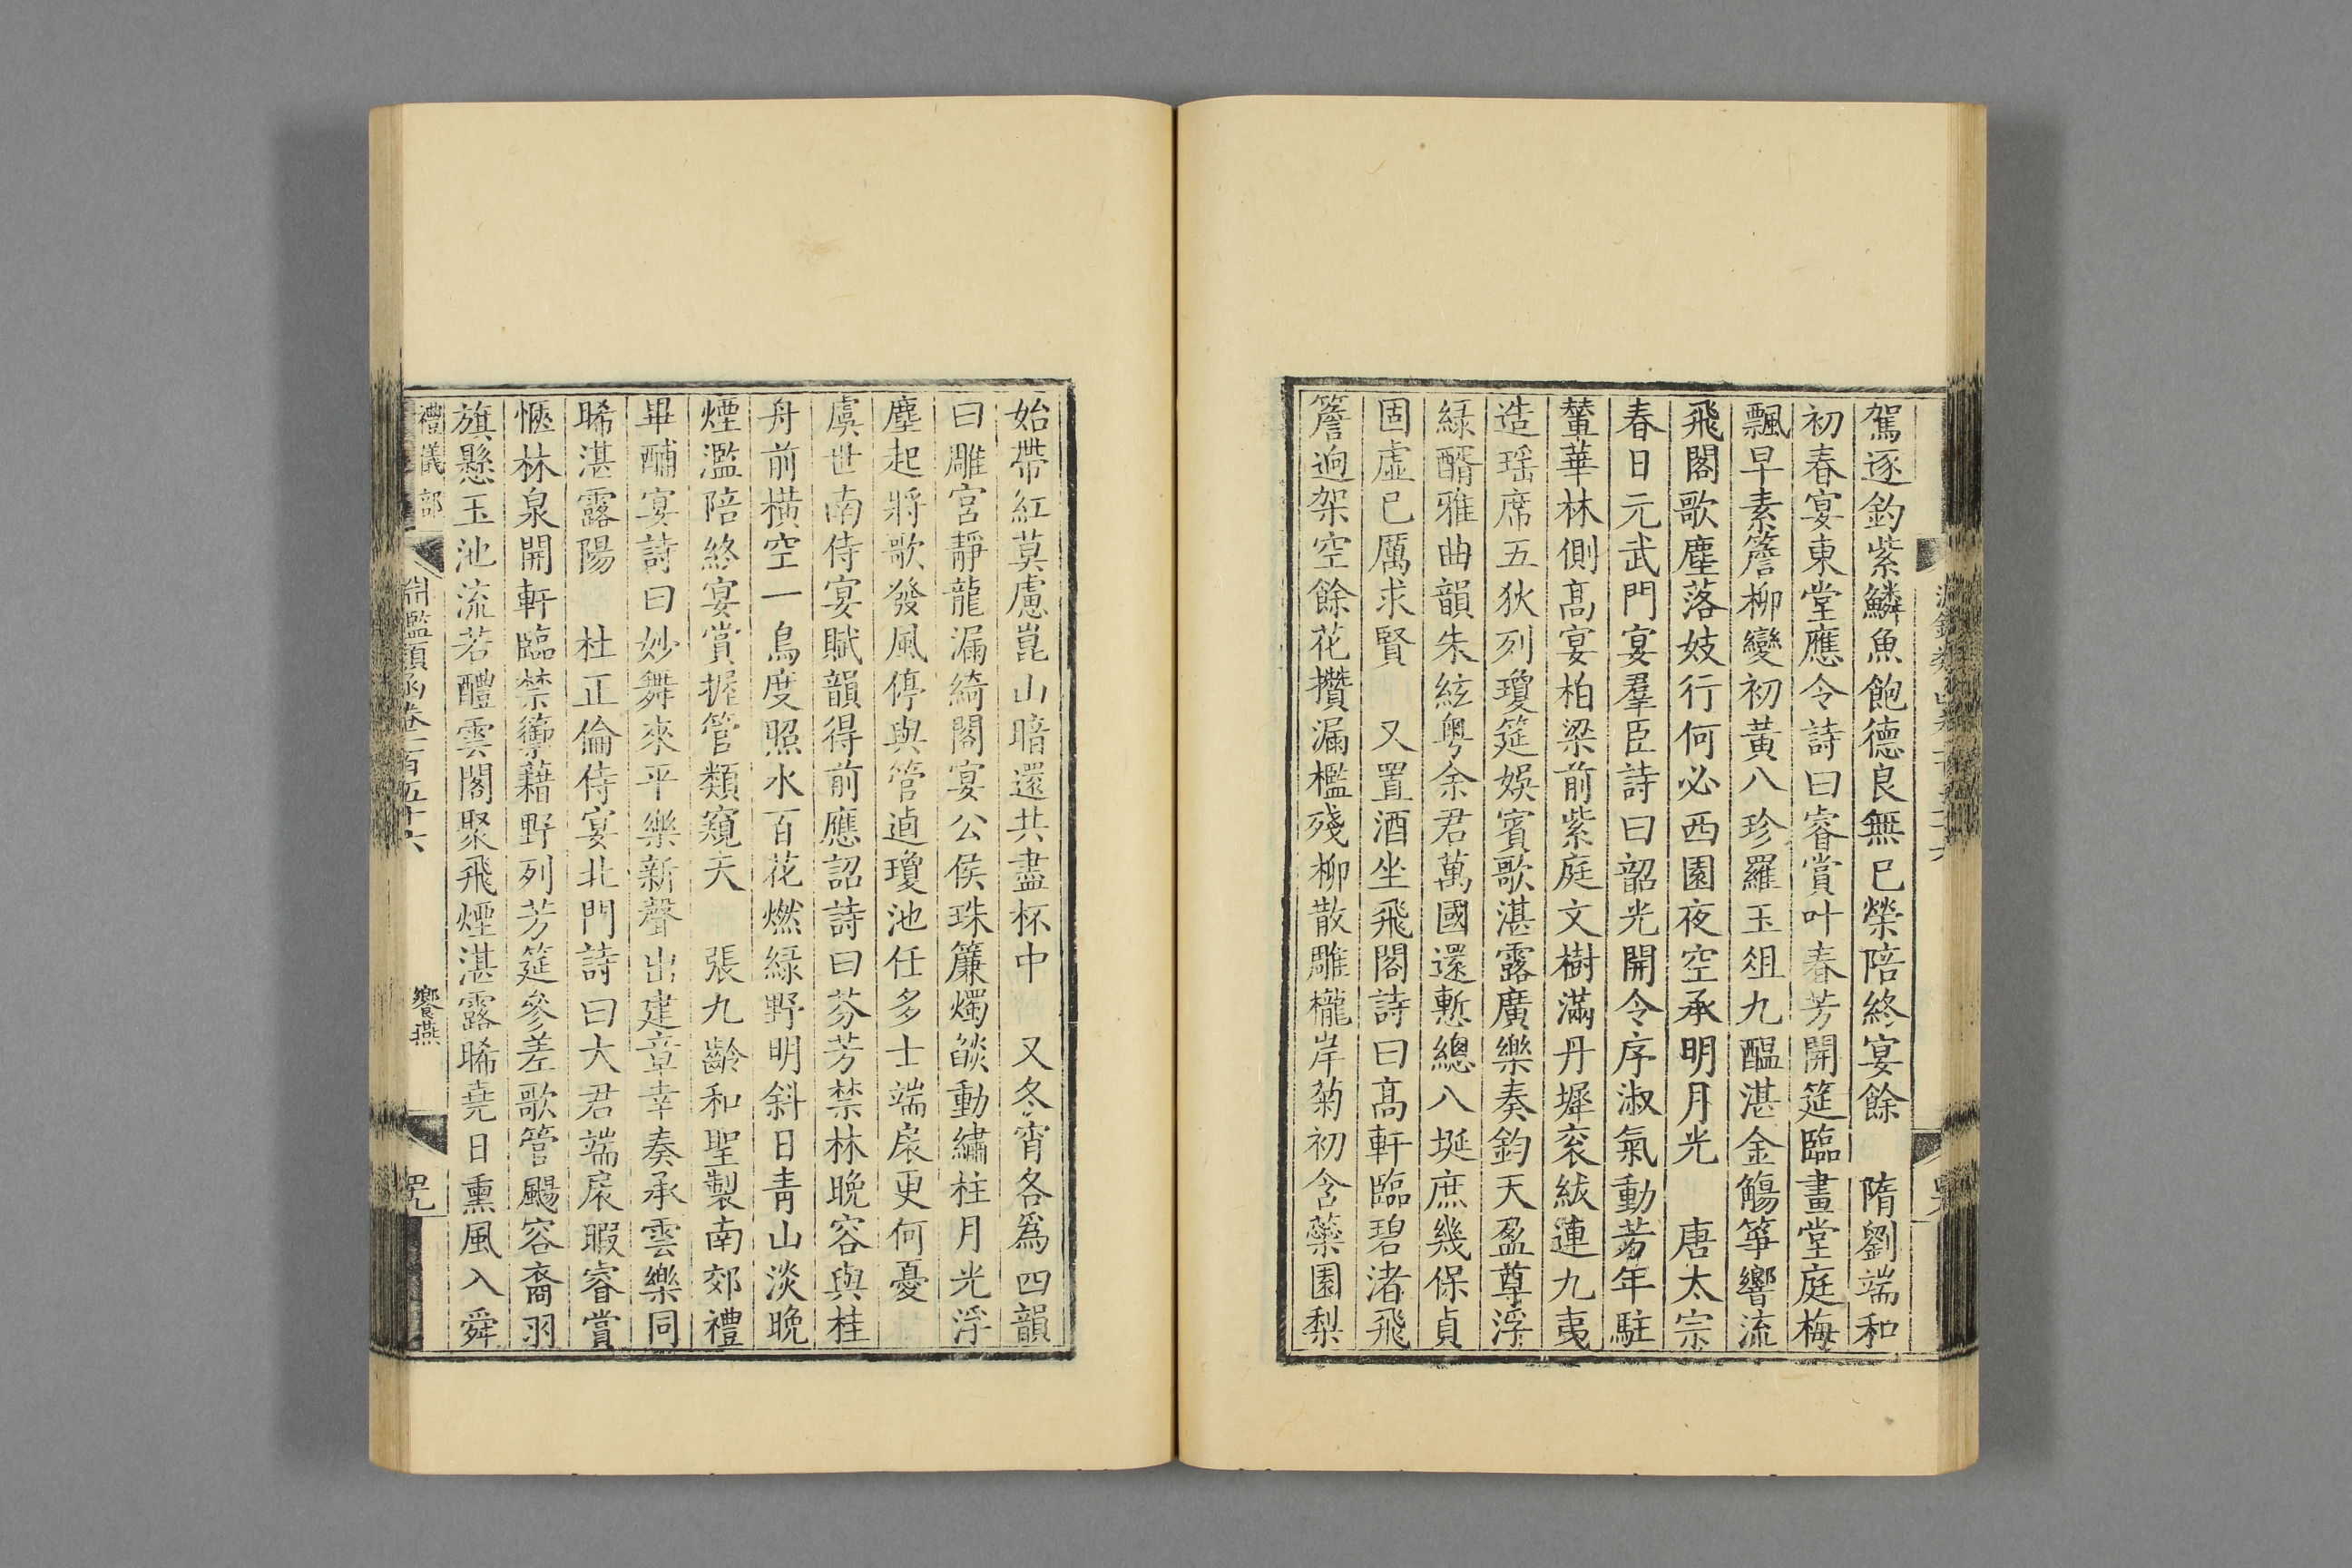 駕逐釣紫鱗魚飽德良無已榮陪終宴餘 隋劉端和
初春宴東堂應令詩曰睿賞叶春芳開筵臨畫堂庭梅
飄早素簷柳變初黃八珍羅玉俎九醞湛金觴箏響流
飛閣歌塵落妓行何必西園夜空承明月光 唐太宗
春日元武門宴羣臣詩曰韶光開令序淑氣動芳年駐
輦華林側髙宴柏梁前紫庭文樹滿丹墀衮紱連九夷
造瑤席五狄列瓊筵娛賓歌湛露廣樂奏鈞天盈尊浮
綠醑雅曲韻朱絃粤余君萬國還慙總八埏庶幾保貞
固虛已厲求賢 又置酒坐飛閣詩曰髙軒臨碧渚飛
簷迥架空餘花攢漏檻殘柳散雕櫳岸菊初含蘂園梨
始帶紅莫慮崑山暗還共盡杯中 又冬宵各爲四韻
曰雕宮靜龍漏綺閣宴公侯珠簾燭燄動繡柱月光浮
塵起將歌發風停與管遒瓊池任多士端扆更何憂
虞世南侍宴賦韻得前應詔詩曰芬芳禁林晚容與桂
舟前橫空一鳥度照水百花燃綠野明斜日青山淡晚
煙濫陪終宴賞握管類窺天 張九齡和聖製南郊禮
畢酺宴詩曰妙舞來平樂新聲出建章幸奏承雲樂同
晞湛露陽 杜正倫侍宴北門詩曰大君端扆暇睿賞
愜林泉開軒臨禁籞藉野列芳筵參差歌管颺容裔羽
旗懸玉池流若醴雲閣聚飛煙湛露晞堯日熏風入舜
禮儀部 淵鑑類函卷一百五十六 饗燕 罕九